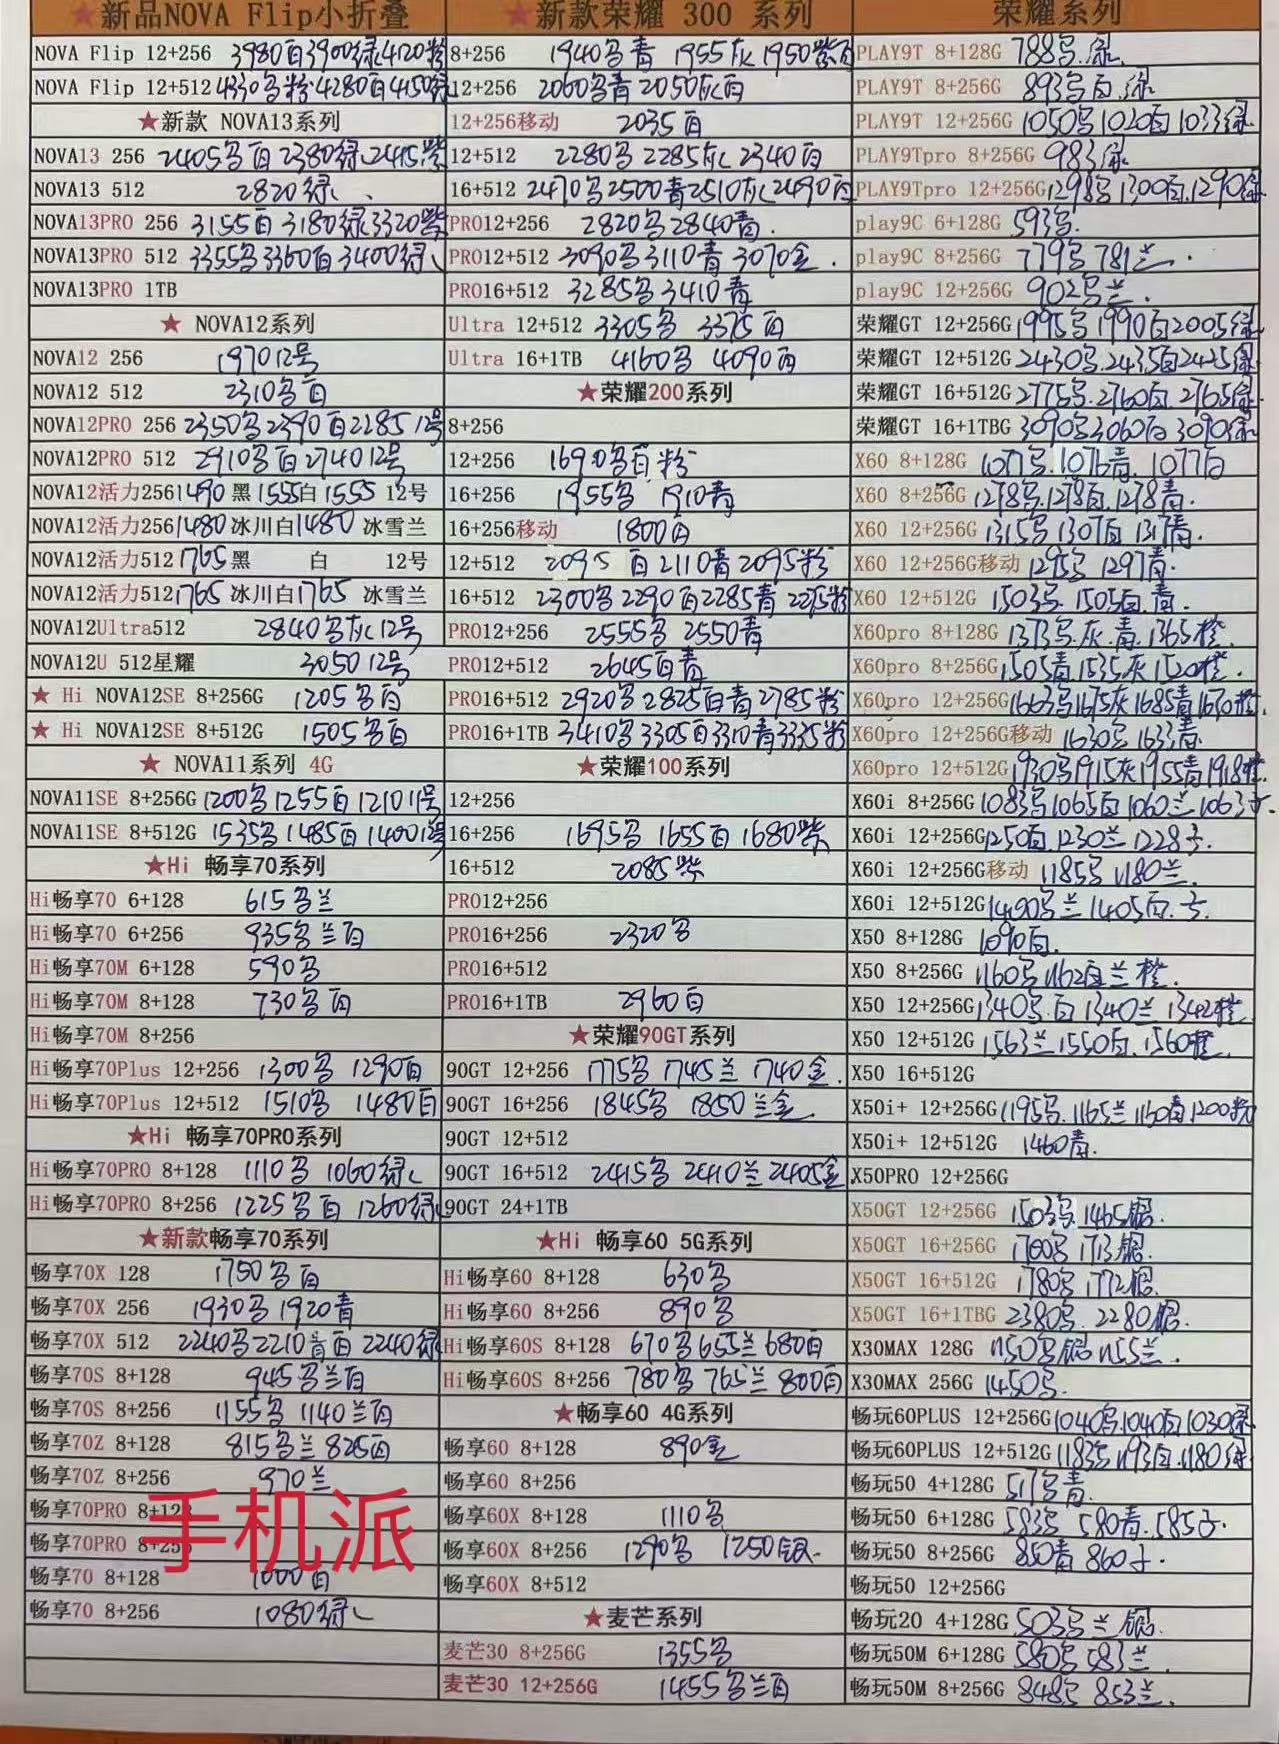 ★新品NOVA Flip小折叠
NOVA Flip 12+256 3980白3900绿4120粉
NOVA Flip 12+512 4330多粉4280白4150绿
★新款 NOVA13系列
NOVA13 256 2405多白2380绿2415紫
NOVA13 512 2820绿
NOVA13PRO 256 3155白3180绿3320紫
NOVA13PRO 512 3355多3360白3400绿
NOVA13PRO 1TB
★ NOVA12系列
NOVA12 256 1970 12号
NOVA12 512 2310多白
NOVA12PRO 256 2350多2390白2285 12号
NOVA12PRO 512 2910多白2740 12号
NOVA12活力256 1490 黑 1555白 1555 12号
NOVA12活力256 1480 冰川白1480 冰雪兰
NOVA12活力512 1765 黑 白 12号
NOVA12活力512 1765 冰川白1765 冰雪兰
NOVA12Ultra512 2840多灰12号
NOVA12U 512星耀 3050 12号
★ Hi NOVA12SE 8+256G 1205多白
★ Hi NOVA12SE 8+512G 1505多白
★ NOVA11系列 4G
NOVA11SE 8+256G 1200多1255白1210 11号
NOVA11SE 8+512G 1535多1485白1400
★Hi 畅享70系列
Hi畅享70 6+128 615多兰
Hi畅享70 6+256 935多兰白
Hi畅享70M 6+128 590多
Hi畅享70M 8+128 730多白
Hi畅享70M 8+256
Hi畅享70Plus 12+256 1300多 1290白
Hi畅享70Plus 12+512 1510多 1480白
★Hi 畅享70PRO系列
Hi畅享70PRO 8+128 1110多 1060绿
Hi畅享70PRO 8+256 1225多白 1260绿
★新款畅享70系列
畅享70X 128 1750多白
畅享70X 256 1930多1920青
畅享70X 512 2240多2210青白2240绿
畅享70S 8+128 945多兰白
畅享70S 8+256 1155多1140兰白
畅享70Z 8+128 815多兰 825白
畅享70Z 8+256 970兰
畅享70PRO 8+128
畅享70PRO 8+256
手机派
畅享70 8+128 1000白
畅享70 8+256 1080绿
★新款荣耀 300 系列
8+256 1940多青 1955灰1950紫白
12+256 2060多青2050灰白
12+256移动 2035白
12+512 2280多2285灰2340白
16+512 2470多2500青2510灰2490白
PRO12+256 2820多2840青
PRO12+512 3090多3110青3070金
PRO16+512 3285多3410青
Ultra 12+512 3305多 3375白
Ultra 16+1TB 4160多 4090白
★荣耀200系列
8+256
12+256 1690多白粉
16+256 1955多 1910青
16+256移动 1800白
12+512 2095白2110青2095粉
16+512 2300多2290白2285青2275粉
PRO12+256 2555多2550青
PRO12+512 2645白青
PRO16+512 2920多2825白青2785粉
PRO16+1TB 3410多3305白3310青3335粉
★荣耀100系列
12+256
16+256 1695多1655白1680紫
16+512 2085紫
PRO12+256
PRO16+256 2320多
PRO16+512
PRO16+1TB 2960白
★荣耀90GT系列
90GT 12+256 1775多1745兰1740金
90GT 16+256 1845多 1850兰金
90GT 12+512
90GT 16+512 2415多2410兰2405金
90GT 24+1TB
★Hi 畅享60 5G系列
Hi畅享60 8+128 630多
Hi畅享60 8+256 890多
Hi畅享60S 8+128 670多655兰680白
Hi畅享60S 8+256 780多765兰800白
★畅享60 4G系列
畅享60 8+128 890金
畅享60 8+256
畅享60X 8+128 1110多
畅享60X 8+256 1290多 1250银
畅享60X 8+512
★麦芒系列
麦芒30 8+256G 1355多
麦芒30 12+256G 1455多兰白
荣耀系列
PLAY9T 8+128G 788多.绿
PLAY9T 8+256G 893多白.绿
PLAY9T 12+256G 1050多1020白1033绿
PLAY9Tpro 8+256G 983绿
PLAY9Tpro 12+256G 1298多1300白1290绿
play9C 6+128G 593多
play9C 8+256G 779多781兰
play9C 12+256G 902多兰
荣耀GT 12+256G 1995多1990白2005绿
荣耀GT 12+512G 2430多2435白2425绿
荣耀GT 16+512G 2775多2760白2765绿
荣耀GT 16+1TBG 3090多3060白3090绿
X60 8+128G 1077多1076青1077白
X60 8+256G 1278多1278白1278青
X60 12+256G 1315多1307白1317青
X60 12+256G移动 1295多1297青
X60 12+512G 1503多1505白.青
X60pro 8+128G 1373多.灰.青.1365橙
X60pro 8+256G 1505青1535灰1520橙
X60pro 12+256G 1663多1675灰1685青1670橙
X60pro 12+256G移动 1630多1633青
X60pro 12+512G 1930多1915灰1955青1918橙
X60i 8+256G 1083多1065白1060兰1063子
X60i 12+256G 1250白1230兰1228子
X60i 12+256G移动 1185多1180兰
X60i 12+512G 1490多兰1405白.子
X50 8+128G 1090白
X50 8+256G 1160多1162白兰橙
X50 12+256G 1340多.白1340兰1342橙
X50 12+512G 1563兰1550白1560橙
X50 16+512G
X50i+ 12+256G 1195多1165兰1160青1200粉
X50i+ 12+512G 1460青
X50PRO 12+256G
X50GT 12+256G 1503多1465银
X50GT 16+256G 1760多1713银
X50GT 16+512G 1780多1772银
X50GT 16+1TBG 2380多2280银
X30MAX 128G 1150多银1155兰
X30MAX 256G 1450多
畅玩60PLUS 12+256G 1040多1040白1030绿
畅玩60PLUS 12+512G 1183多1193白1180绿
畅玩50 4+128G 517多青
畅玩50 6+128G 583多580青585子
畅玩50 8+256G 850青860子
畅玩50 12+256G
畅玩20 4+128G 503多兰银
畅玩50M 6+128G 580多583兰
畅玩50M 8+256G 848多853兰